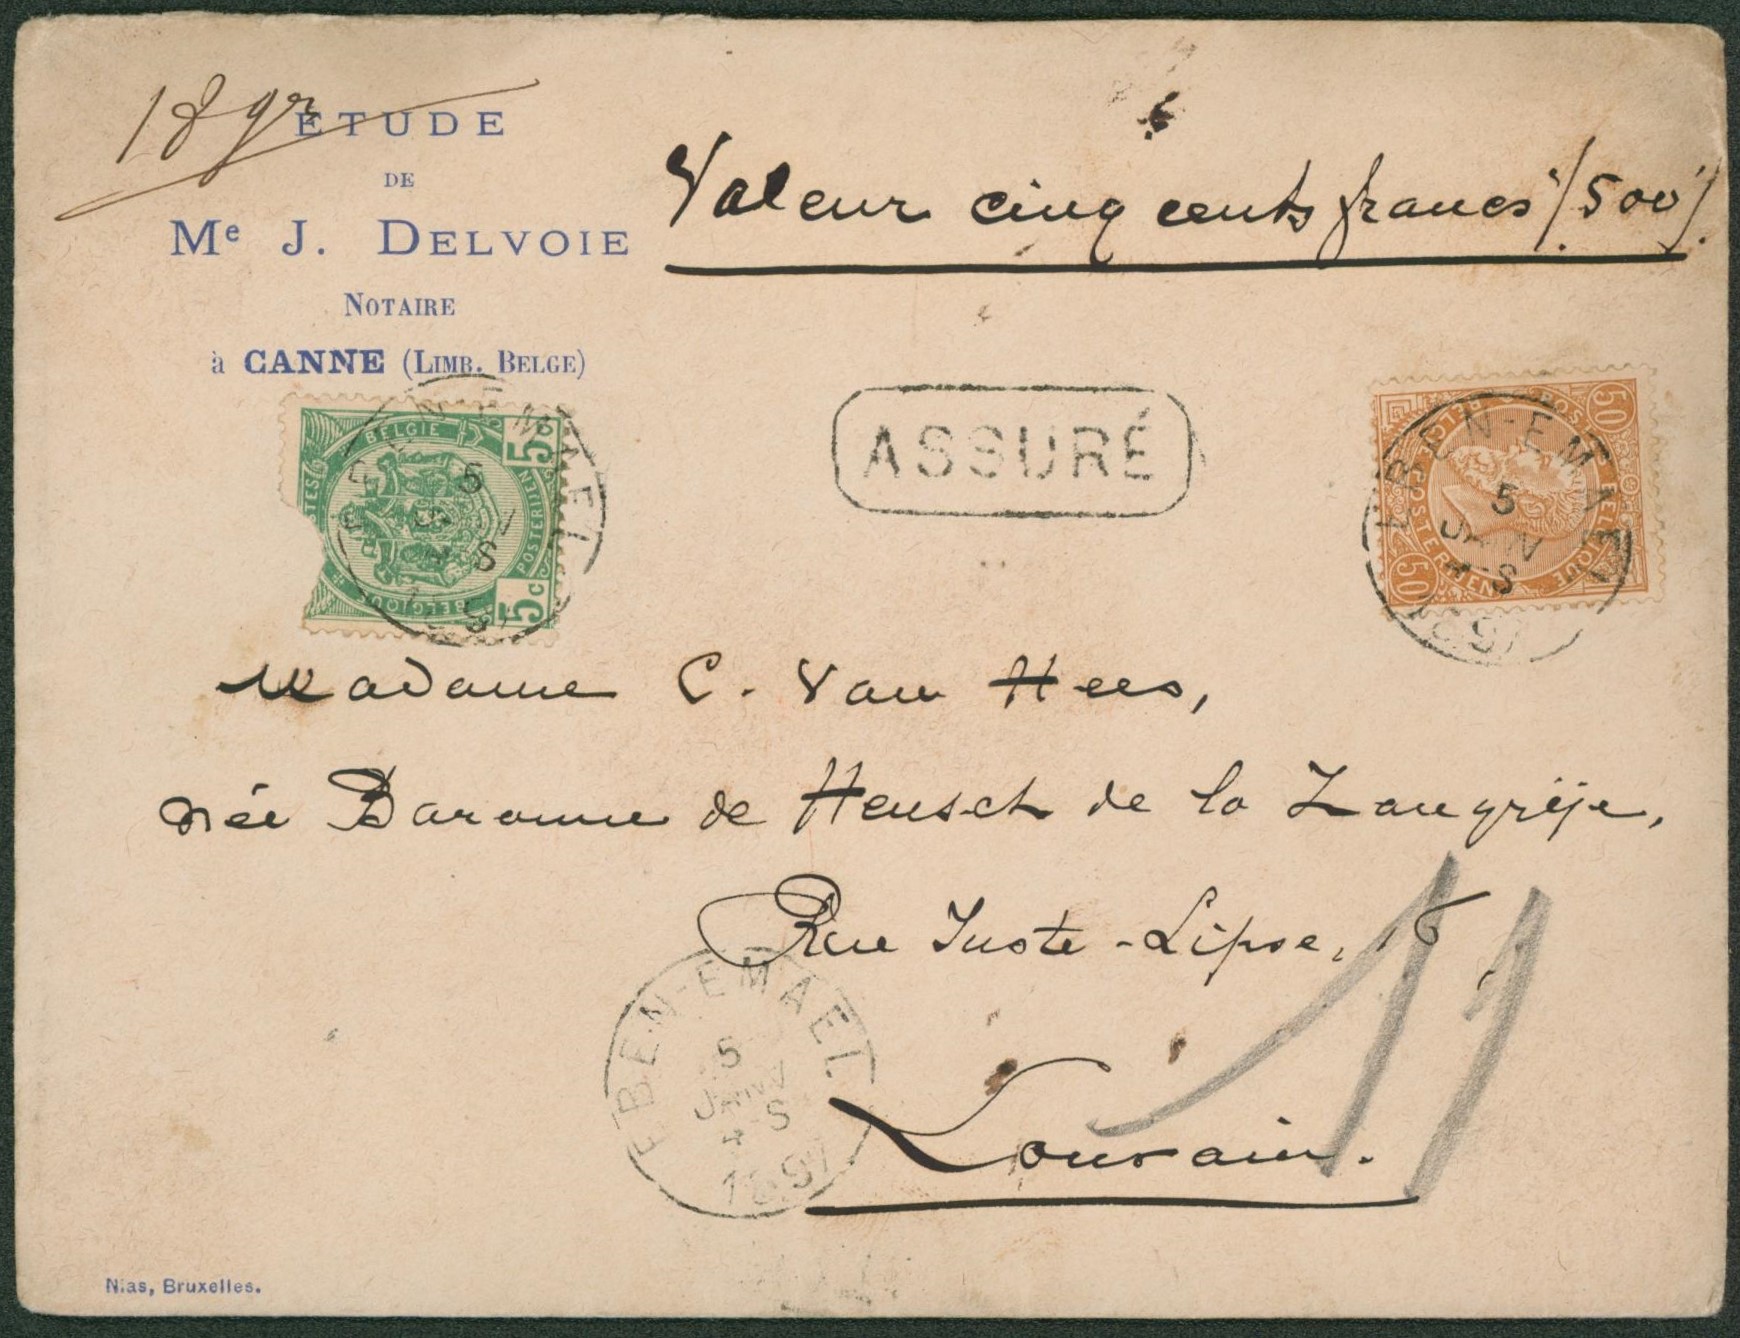 18 gr
ÉTUDE
DE
Me J. DELVOIE
NOTAIRE
à CANNE (LIMB. BELGE)
Valeur cinq cents francs (500)
BELGIE
5c
POSTERIJEN
BELGIQUE
5c
EBEN-EMAEL
5
JANV
4-S
ASSURÉ
50
POSTES BELGIQUE
POSTERIJEN
50
EBEN-EMAEL
5
JANV
4-S
Madame C. Van Hees,
née Baronne de Heusch de la Zangrije,
Rue Juste-Lipse, 18
11
EBEN-EMAEL
5
JANV
4-S
1897
Louvain.
Nias, Bruxelles.